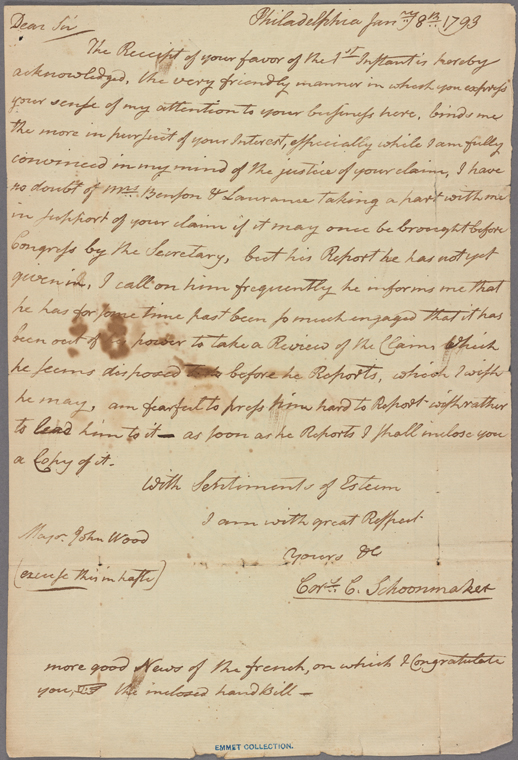 Dear Sir Philadelphia Janry 8th 1793
The Receipt of your favor of the 1st Instant is hereby
acknowledged, the very friendly manner in which you express
your sense of my attention to your business here, binds me
the more in pursuit of your Interest, especially while I am fully
convinced in my mind of the justice of your claim, I have
no doubt of Mrs Benson & Laurance taking a part with me
in support of your claim if it may once be brought before
Congress by the Secretary, but his Report he has not yet
given in, I call on him frequently he informs me that
he has for some time past been so much engaged that it has
been out of his power to take a Review of the Claim, Which
he seems disposed before he Reports, which I wish
he may, am fearful to press him hard to Report wish rather
to lead him to it — as soon as he Reports I shall inclose you
a Copy of it.
With Sentiments of Esteem
I am with great Respect
Major John Wood
Yours &c
(excuse this in haste)
Cors. C. Schoonmaker
more good News of the french, on which I Congratulate
you, the inclosed hand Bill —
EMMET COLLECTION.